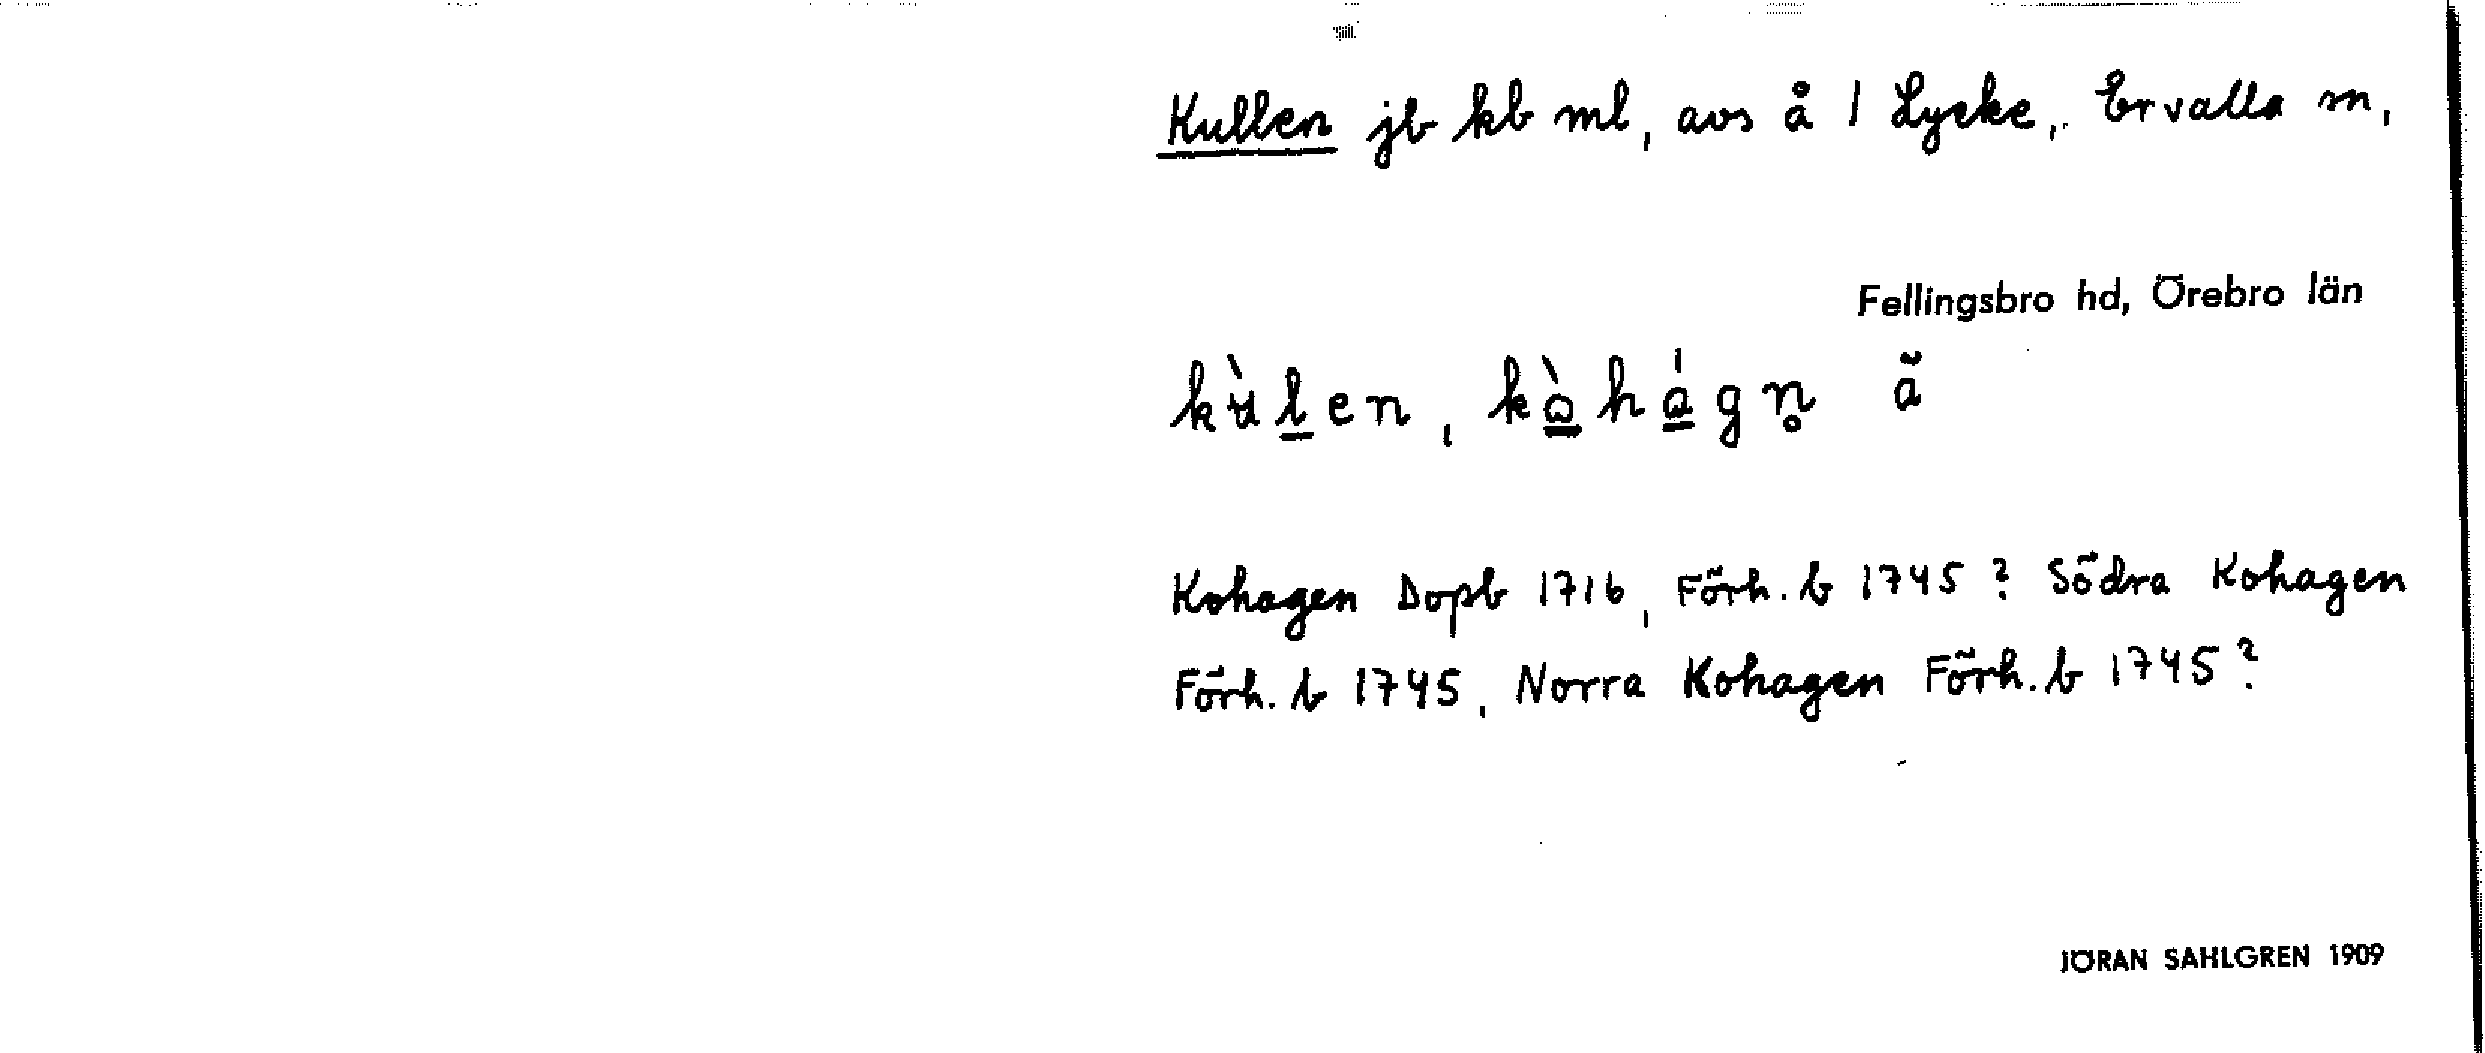 Kullen jb kb ml, avs å 1 Lycke, Ervalla sn,
Fellingsbro hd, Örebro län
kùlen, kòhágn̥ ã
Kohagen Dopb 1716, Förh. b 1745? Södra Kohagen
Förh. b 1745, Norra Kohagen Förh. b 1745?
JÖRAN SAHLGREN 1909